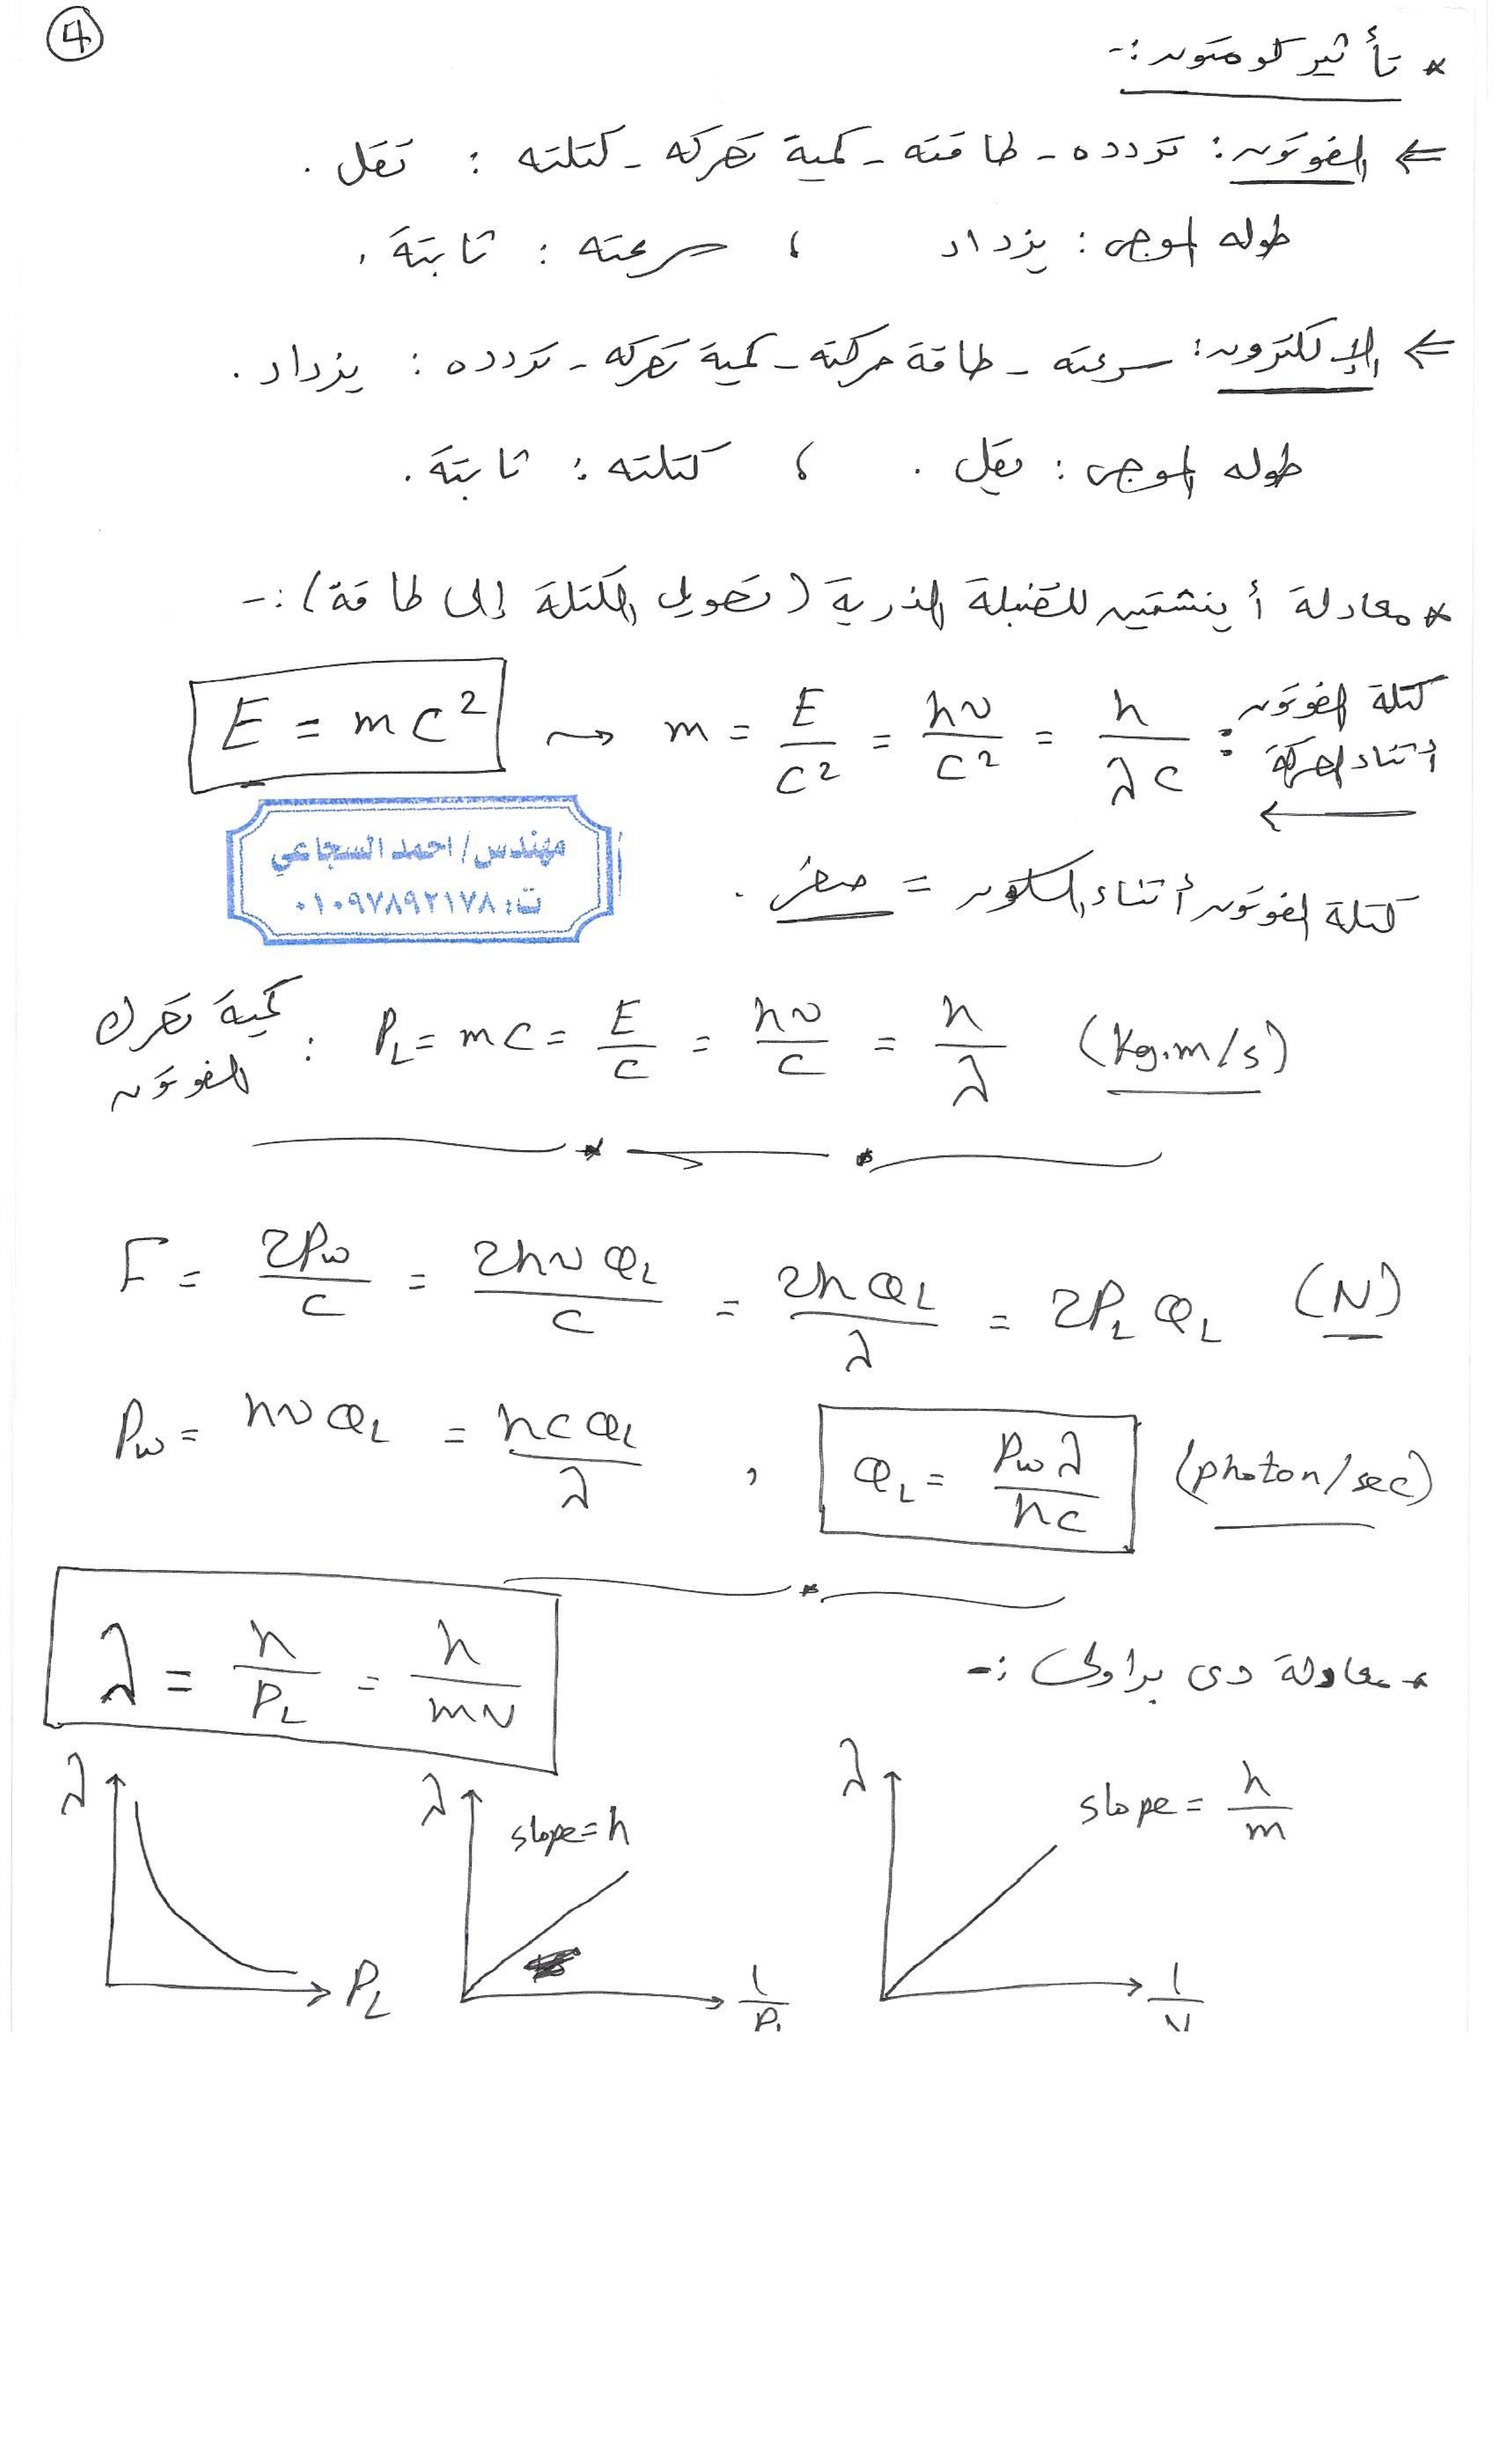 ④
* تأثير كومتون :-
⇐ الفوتون : تردده - طاقته - كمية تحركه - كتلته : تقل .
طوله الموجى : يزداد ، سرعته : ثابتة .
⇐ الإلكترون : سرعته - طاقة حركته - كمية تحركه - تردده : يزداد .
طوله الموجى : يقل . ، كتلته : ثابتة .
* معادلة أينشتين للقنبلة الذرية (تحويل الكتلة إلى طاقة) :-
كتلة الفوتون أثناء الحركة :
E = mc² ⇝ m = E/c² = hν/c² = h/λc
مهندس/ احمد السجاعي
ت: ٠١٠٩٧٨٩٢١٧٨
كتلة الفوتون أثناء السكون = صفر .
كمية تحرك الفوتون : P_L = mc = E/c = hν/c = h/λ (kg.m/s)
F = 2Pw/c = 2hν Φ_L/c = 2h Φ_L/λ = 2P_L Φ_L (N)
Pw = hν Φ_L = hc Φ_L/λ , Φ_L = Pw λ/hc (photon/sec)
* معادلة دى براولى :-
λ = h/P_L = h/mv
λ P_L
λ slope = h 1/P_L
λ slope = h/m 1/v